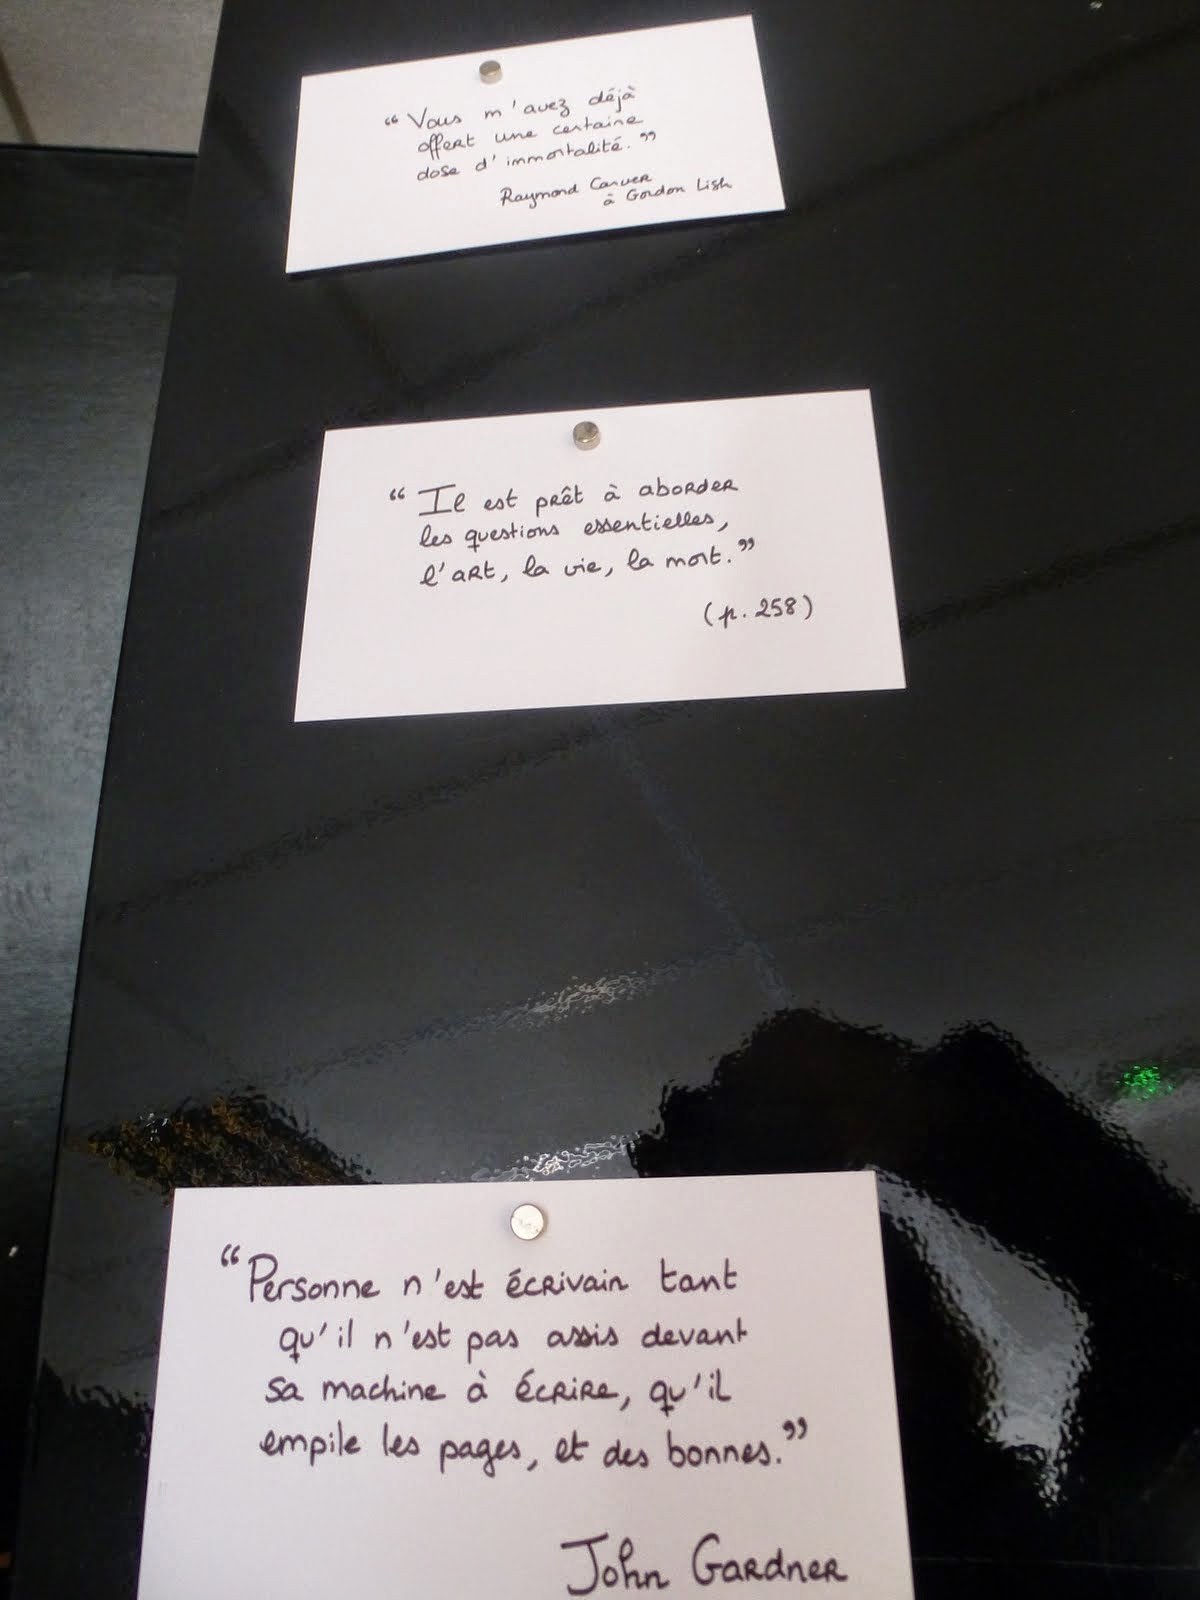 “Vous m'avez déjà
offert une certaine
dose d'immortalité.”
Raymond Carver
à Gordon Lish
“Il est prêt à aborder
les questions essentielles,
l'art, la vie, la mort.”
(p. 258)
“Personne n'est écrivain tant
qu'il n'est pas assis devant
sa machine à écrire, qu'il
empile les pages, et des bonnes.”
John Gardner